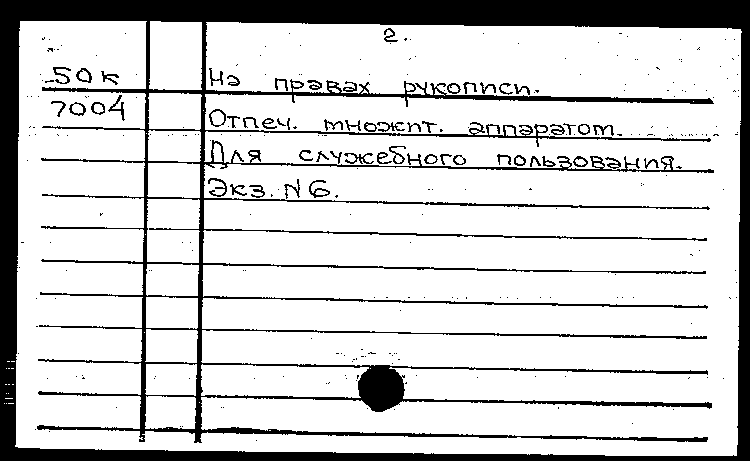 2.
50к На правах рукописи.
7004 Отпеч. множит. аппаратом.
Для служебного пользования.
Экз. N6.